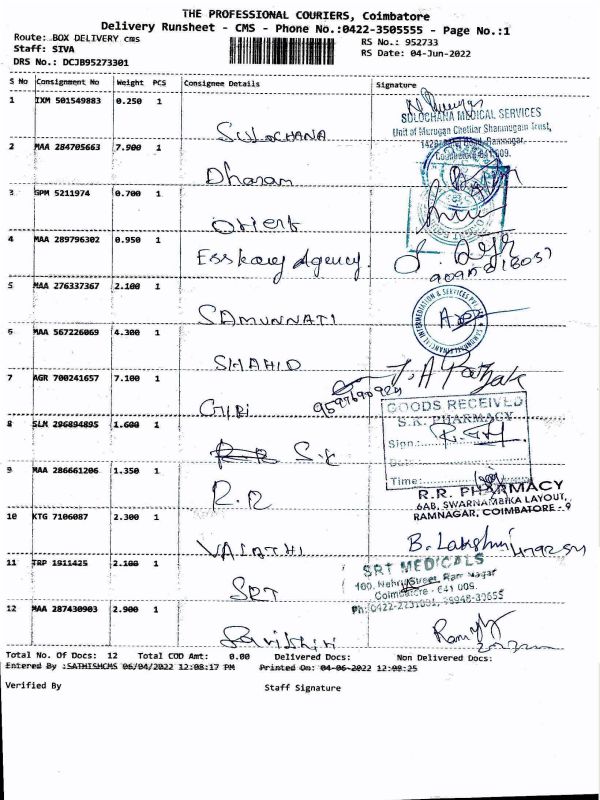 THE PROFESSIONAL COURIERS, Coimbatore
Delivery Runsheet - CMS - Phone No.:0422-3505555 - Page No.:1
Route: BOX DELIVERY cms
RS No.: 952733
Staff: SIVA
RS Date: 04-Jun-2022
DRS No.: DCJB95273301
S No Consignment No Weight PCS Consignee Details Signature
1 IXM 501549883 0.250 1
SULOCHANA
SULOCHANA MEDICAL SERVICES
Unit of Murugan Chettiar Shanmugam Trust,
2 MAA 284705663 7.900 1
Dharan
3 GPM 5211974 0.700 1
Orient
4 MAA 289796302 0.950 1
Agency
5 MAA 276337367 2.100 1
SAMUNNATI
6 MAA 567226069 4.300 1
SHAHID
7 AGR 700241657 7.100 1
GIRI
GOODS RECEIVED
S.K. PHARMACY
Sign.:
Date:
Time:
8 SLM 296894895 1.600 1
S.K
9 MAA 286661206 1.350 1
R.R
R.R. PHARMACY
6AB, SWARNAMBIKA LAYOUT,
RAMNAGAR, COIMBATORE - 9
10 KTG 7106087 2.300 1
B. Lakshmi
11 TRP 1911425 2.100 1
SRT
SRT MEDICALS
100, Nehru Street, Ram Nagar
Coimbatore - 641 009.
12 MAA 287430903 2.900 1
Total No. Of Docs: 12 Total COD Amt: 0.00 Delivered Docs: Non Delivered Docs:
Entered By :SATHISHCMS 06/04/2022 12:08:17 PM Printed On: 04-06-2022 12:09:25
Verified By Staff Signature